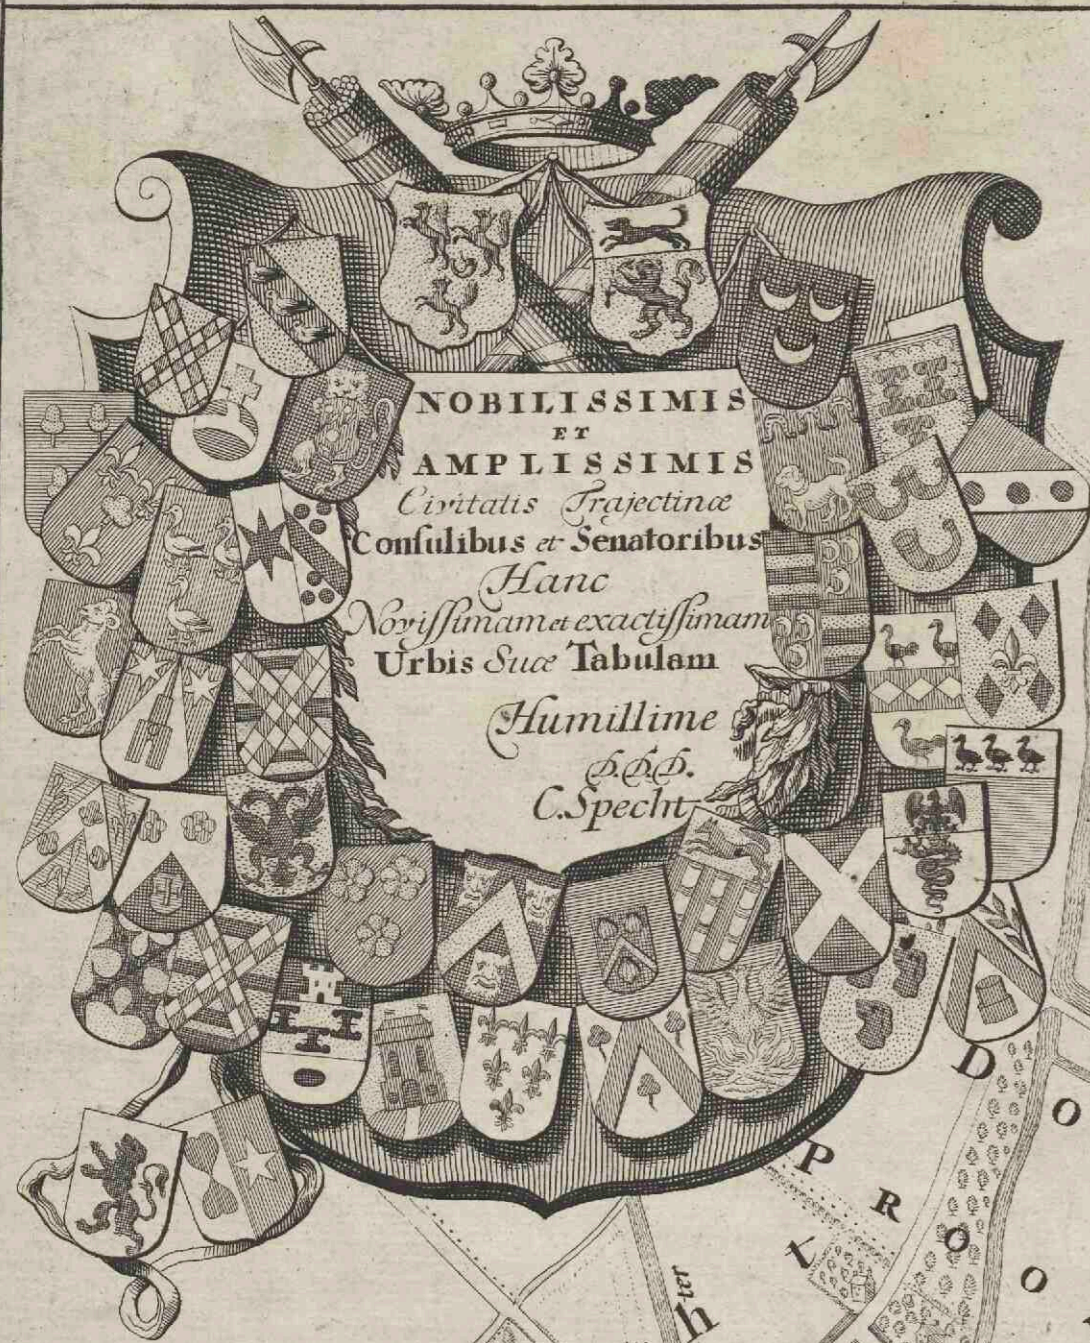 NOBILISSIMIS
ET
AMPLISSIMIS
Civitatis Trajectinæ
Conſulibus et Senatoribus
Hanc
Noviſſimam et exactiſſimam
Urbis Suæ Tabulam
Humillime
D.D.D.
C. Specht
D
O
P
R
O
O
t
h